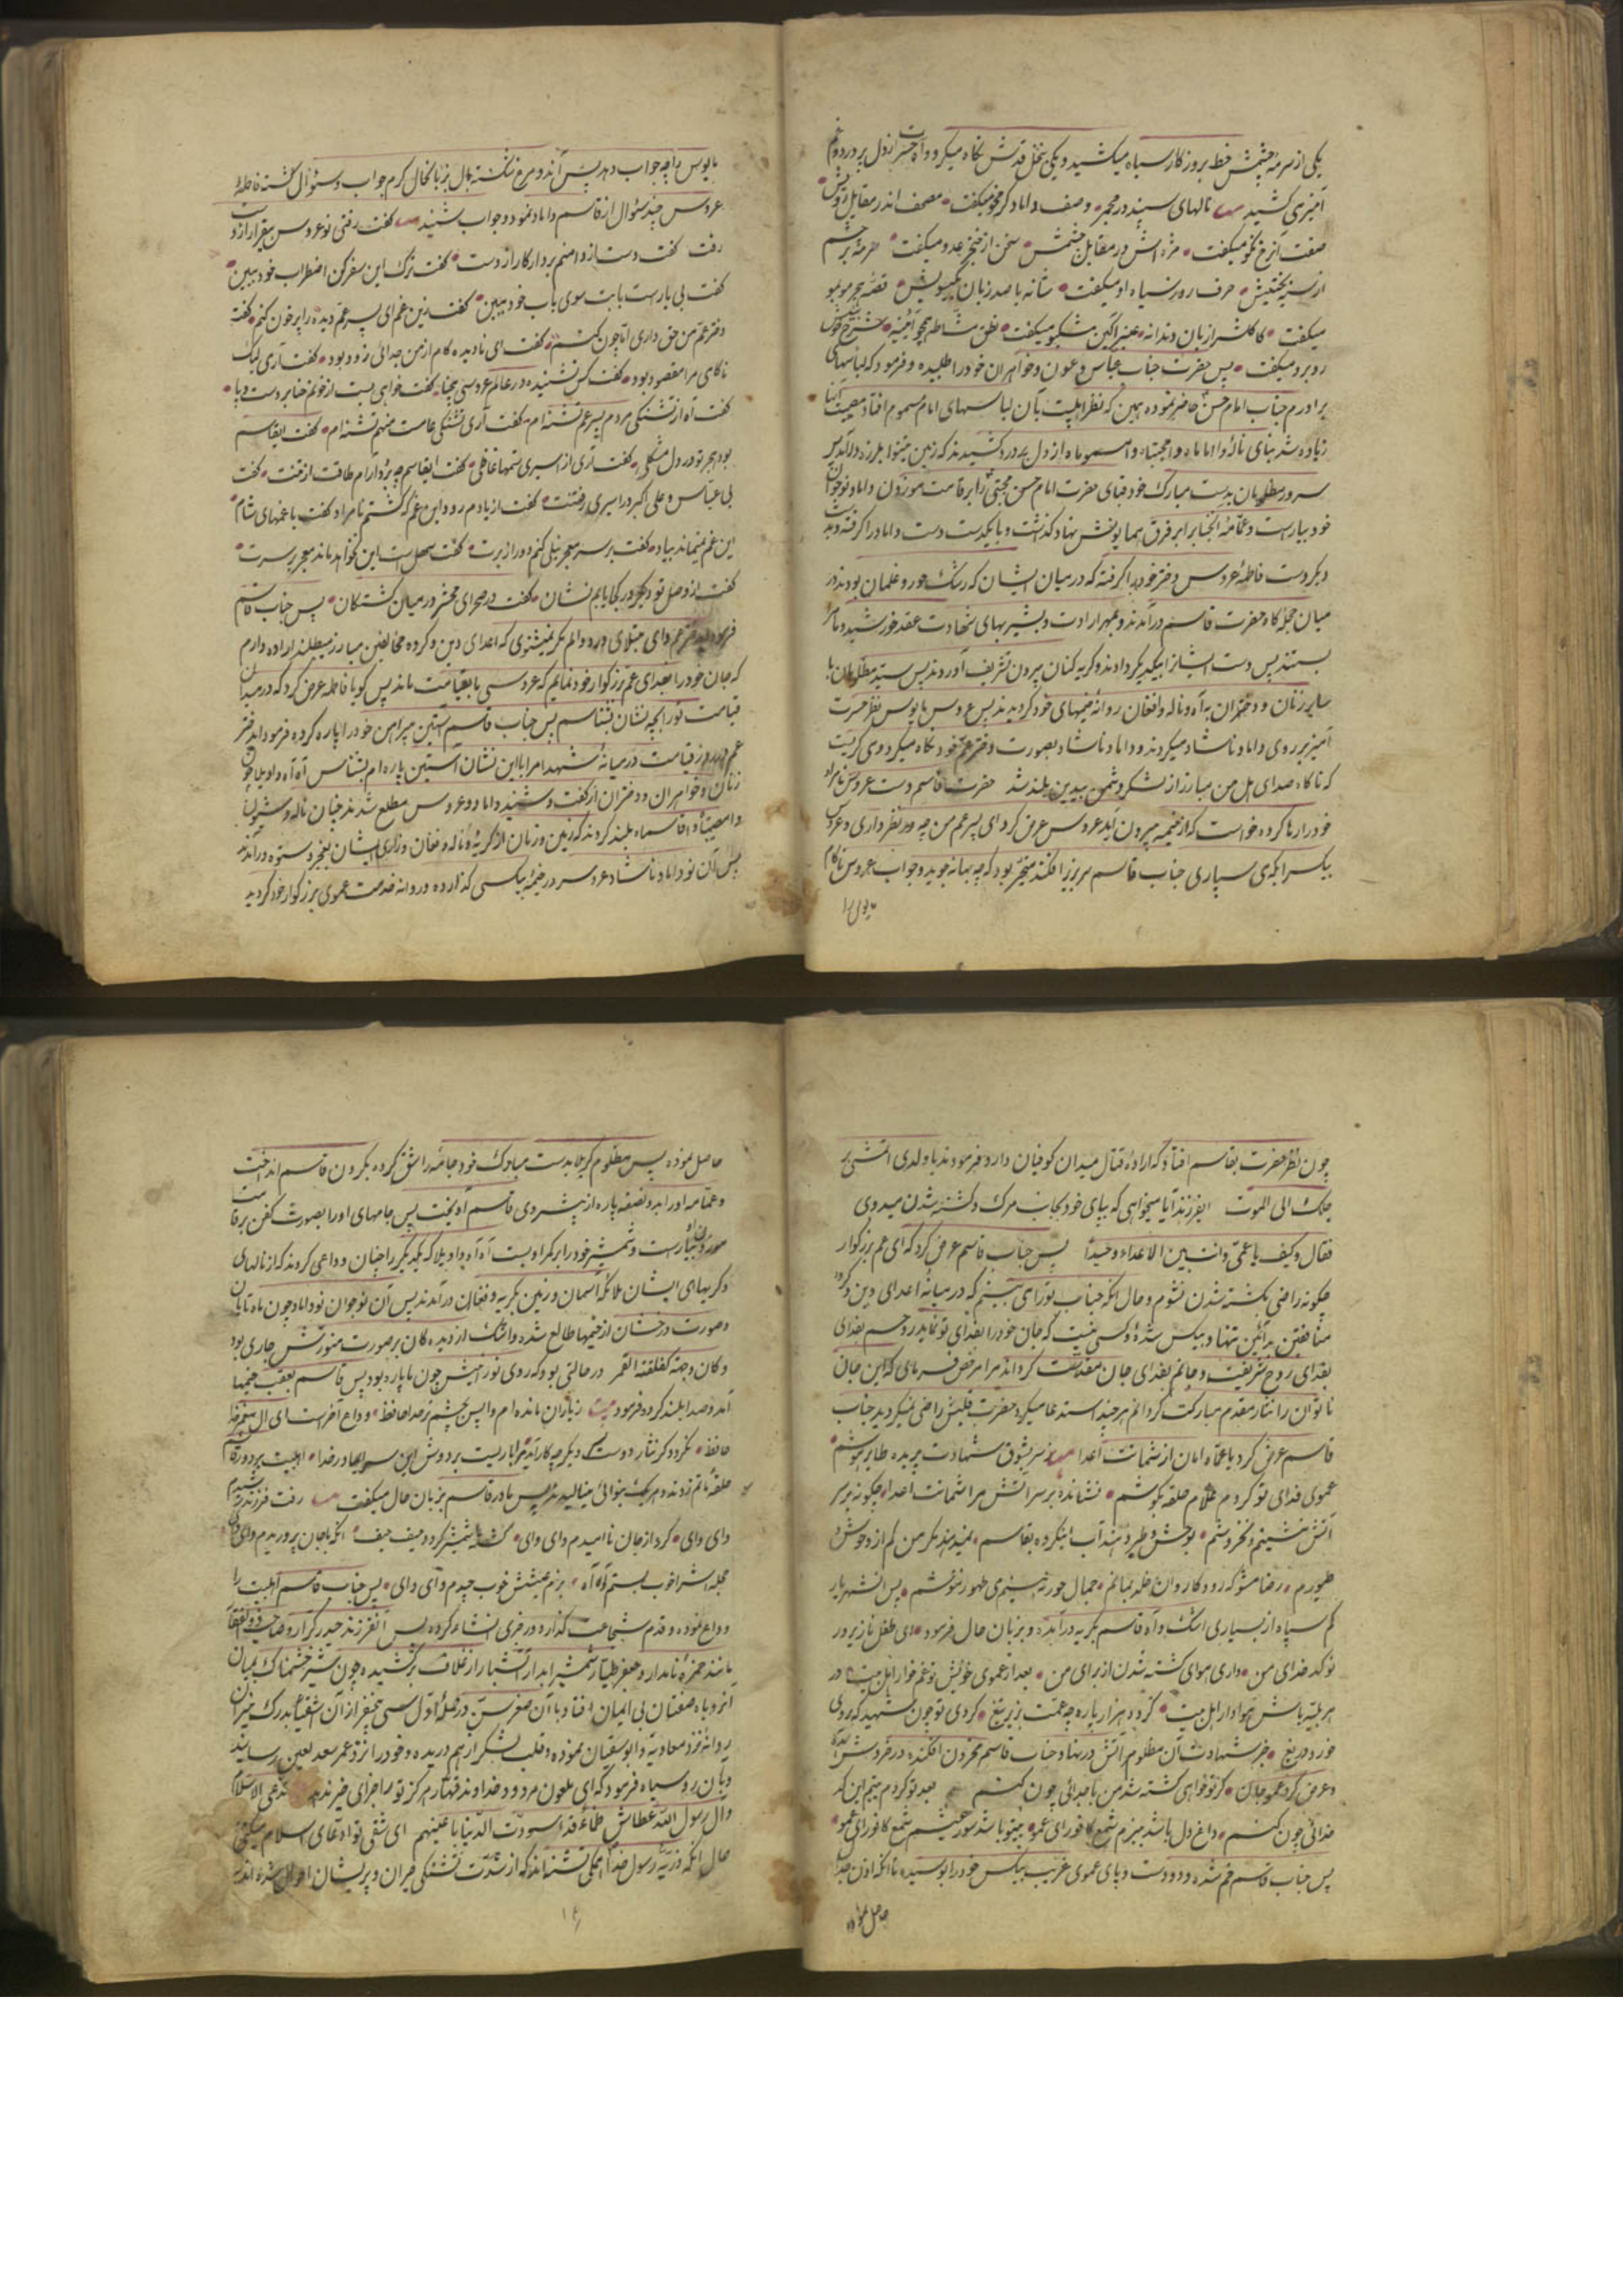 یکی از سرمهٔ چشمش خط بروزگار سیاه میکشید و یکی بنخل قدش نگاه میکرد و آه حسرت از دل پر درد و غم
آمیزی کشید نالهای سپند در مجمره وصف داماد گرم خو میگفت مصحف اندر مقابل رویش
صفت آن رخ نکو میگفت مژه‌اش در مقابل چشمش سخن از خنجر عدو میگفت سرمه بر چشم
از سیه بختیش حرف روز سیاه او میگفت شانه با صد زبان بگیسویش قصهٔ هجر مو بمو
میگفت کاکلش از زبان دندانه عنبر آگین مشکبو میگفت مشاطه همچو آئینه شرح
روبرو میگفت پس حضرت جناب عباس و عون و خواهران خود را طلبیده و فرمود که لباسهای
برادرم جناب امام حسن حاضر نموده همین که نظر اهلبیت بآن لباسهای امام مسموم افتاد مصیبت آنها
زیاده شد بنای ناله وا اماماه وا مجتباه وا مسموماه از دل پر درد کشیدند که زمین نینوا بلرزه درآمد پس
سرور مظلومان بدست مبارک خود قبای حضرت امام حسن مجتبی را بر قامت موزون داماد نوجوان
خود بیاراست و عمامهٔ آنجناب را بر فرق همایونش نهاد گذاشت و بایکدست دست داماد را گرفته و بدست
دیگر دست فاطمهٔ عروس دختر خود را گرفته که در میان ایشان که رشک حور و غلمان بودند در
میان حجله‌گاه حضرت قاسم درآمدند و بمهر ارادت و بشیربهای شهادت عقد خورشید و ماه
بستند پس دست ایشان را بیکدیگر دادند و گریه کنان بیرون تشریف آوردند پس سید مظلومان با
سایر زنان و دختران به آه و ناله و افغان روانهٔ خیمهای خود گردیدند پس عروس مایوس نظر حسرت
آمیز بر روی داماد ناشاد میکردند و داماد ناشاد بصورت دختر عم خود نگاه میکرد وی گریست
که ناگاه صدای هل من مبارز از لشکر دشمن بیدین بلند شد حضرت قاسم دست عروس نامراد
خود را رها کرده خواست که از خیمه بیرون آید عروس عرض کرد ای پسر عم من چه در نظر داری و عروس
بیکس را بکه می سپاری جناب قاسم سر بزیر افکند متحیر بود که چه بهانه جوید و جواب عروس ناکام
مایوس را
مایوس را چه جواب دهد پس آندو مرغ شکسته بال بزبانحال گرم جواب و سئوال گشته فاطمهٔ
عروس چند سئوال از قاسم داماد نمود و جواب شنید گفت رفتی نوعروس بیقرار از دست
رفت گفت دست از دامنم بردار کار از دست گفت ترک این سفر کن اضطراب خود ببین
گفت بی یارست بابت سوی باب خود ببین گفت زین غم ای پسر عم دیده را پر خون کنم گفت
دختر عم من حق داری اما چون کنم گفت ای نادیده کام از من جدائی زود بود گفت آری لیک
ناکامی مرا مقصود بود گفت کس نشنیده در عالم عروسی بیحنا گفت خواهی بست از خونم حنا بر دست و پا
گفت آه از تشنگی مردم پسر عم تشنه‌ام گفت آری تشنگی عامست منهم تشنه‌ام گفت ایقاسم
بود هجر تو در دل مشکلی گفت آری از اسیری ستمها غافلی گفت ایقاسم چه پردازم طاقت از تنت گفت
بی عباس و علی اکبر در اسیری رفتنت گفت از یادم رود این غم که گشتم نامراد گفت با غمهای شام
این غم نمیماند بیاد گفت بر سر معجر نیلی کنم دور از برت گفت سهل است این نخواهد ماند معجر بر سرت
گفت از وصل تو دیگر در کجا یابم نشان گفت در صحرای محشر در میان کشتگان پس جناب قاسم
فرمود ای دختر عم و ای مبتلای درد و الم مگر نمیشنوی که اعدای دین و گروه مخالفین مبارز میطلبند اراده دارم
که جان خود را بفدای عم بزرگوار خود نمایم که عروسی ما بقیامت ماند پس گویا فاطمه عرض کرد که در میدان
قیامت تو را بچه نشان بشناسم پس جناب قاسم آستین پیراهن خود را پاره کرده فرمود ایدختر
عم در روز قیامت در میانهٔ شهدا مرا باین نشان آستین پاره‌ام بشناس آه آه واویلا چون
زنان و خواهران و دختران از گفت و شنید داماد و عروس مطلع شدند چنان ناله و شیون
وا مصیبتا و وا قاسماه بلند کردند که زمین و زمان از گریه و ناله و فغان و زاری ایشان بضجر و ستوه درآمدند
پس آن نوداماد ناشاد عروس در خیمهٔ بیکسی گذارده و روانه خدمت عموی بزرگوار خود گردید
چون نظر حضرت بقاسم افتاد که ارادهٔ قتال میدان کوفیان دارد فرمودند یا ولدی اتمشی بر
جلک الی الموت ایفرزند آیا میخواهی که بپای خود بجانب مرگ و کشته شدن میروی
فقال و کیف یا عمّی و انت بین الاعداء وحیدا پس جناب قاسم عرض کرد که ای عم بزرگوار
چگونه راضی بکشته شدن نشوم و حال آنکه جناب تو را می بینم که در میانهٔ اعدای دین و گروه
منافقین بدآئین تنها و بیکس شدهٔ و کسی نیست که جان خود را بفدای تو نماید روحم بفدای
بفدای روح شریفت و جانم بفدای جان مقدست گرداند مرا مرخص فرمای که این جان
ناتوان را نثار مقدم مبارکت گردانم هر چند استدعا میکرد حضرت قلبش راضی نمیگردید جناب
قاسم عرض کرد یا عماه امان از شماتت اعدا ز سر بشوق شهادت پریده طایر هوشم
عموی فدای تو گردم غلام حلقه بگوشم نشاندهٔ بر سر آتش مرا شماتت اعدا چگونه بر سر
آتش نشینم و نخروشم بوحش و طیر دهند آب اینگروه بقاسم نمیدهند مگر من کم از وحوش و
طیورم رضا مشو که رود کاروان خلد بمانم جمال حور نه‌بینم می طهور ننوشم پس آنشهریار
کم سپاه از بسیاری اشک و آه قاسم بگریه درآمده و بزبان حال فرمود ای طفل ناز پرور
نوکدخدای من داری هوای کشته شدن از برای من بعد از عموی خویش تو غمخوار اهل بیت در
هر بلیّه باش هوادار اهل بیت گردد هزار پاره چه عمت بزیر تیغ گردی تو چون شهید که روی
خورد دریغ خبر شهادت آن مظلوم آتش در نهاد جناب قاسم محزون افکنده در خروش آمده
و عرض کرد عمو جان گر تو خواهی کشته شد من با جدائی چون کنم بعد تو گردم یتیم این کد
خدائی چون کنم داغ دل باشد ببزم شمع کافوری عمو بیتو باشد شور عیشم شمع کافوری عمو
پس جناب قاسم خم شده و دو دست و پای عموی غریب بیکس خود را بوسیده تا آنکه اذن جهاد
حاصل نموده
حاصل نموده پس مظلوم کربلا بدست مبارک خود جامه را شق کرده بگردن قاسم انداخت
و عمامه او را بدو نصفه پاره از پیش روی قاسم آویخت پس جامهای او را بصورت کفن بر قامت
موزون او بیاراست و شمشیر خود را بر کمر او بست آه آه واویلا که یکدیگر را چنان وداعی کردند که از نالهای
و گریهای ایشان ملائکه آسمان و زمین بگریه و فغان درآمدند پس آن نوجوان نوداماد چون ماه تابان
و صورت درخشان از خیمها طالع شده و اشک از دیده‌گان بر صورت منورش جاری بود
و کان وجهه کفلقة القمر در حالتی بود که روی نورانیش چون ماه پاره بود پس قاسم بعقب خیمها
آمد و صدا بلند کرده فرمود ز یاران مانده‌ام واپس بچشم تر خداحافظ وداع آخرست ای آل پیغمبر خدا
حافظ نگردد گر نثار دوست دیگر چه کار آید مرا باریست بر دوش این سر ایمادر خدا اهلبیت بر دور قاسم
حلقهٔ ماتم زدند و هر یک بنوائی مینالیدند پس مادر قاسم بزبان حال میگفت رفت فرزند رشیدم
وای وای کرد از جان ناامیدم وای وای کشته شمشیر گردد حیف حیف آنکه باجان پروریدم وای وای
حجله‌اش را خوب بستم آه آه بزم عیشش خوب چیدم وای وای پس جناب قاسم اهلبیت را
وداع نموده و قدم شجاعت گذارد و رجزی انشاء کرده پس آنفرزند حیدر کرار و صاحب ذوالفقار
مانند حمزهٔ نامدار و جعفر طیار شمشیر آبدار آتشبار از غلاف برکشیده چون شیر خشمناک بمیان
آنروباه صفتان بی ایمان افتاد با آن صغر سن در حملهٔ اول سی پنجنفر از آن اشقیا بدرک نیران
روانهٔ نزد معاویه و ابوسفیان نموده و قلب لشکر از هم دریده و خود را نزد عمر سعد لعین رسانید
و بآن روسیاه فرمود که ای ملعون مردود خداوند قهار هرگز تو را جزای خیر ندهد تدعی الاسلام
و آل رسول الله عطاش ظماء قد اسودت الدنیا باعینهم ای شقی تو ادعای اسلام میکنی
حال آنکه ذریهٔ رسول خدا همگی تشنه‌اند که از شدت تشنگی حیران و پریشان احوال شده‌اند